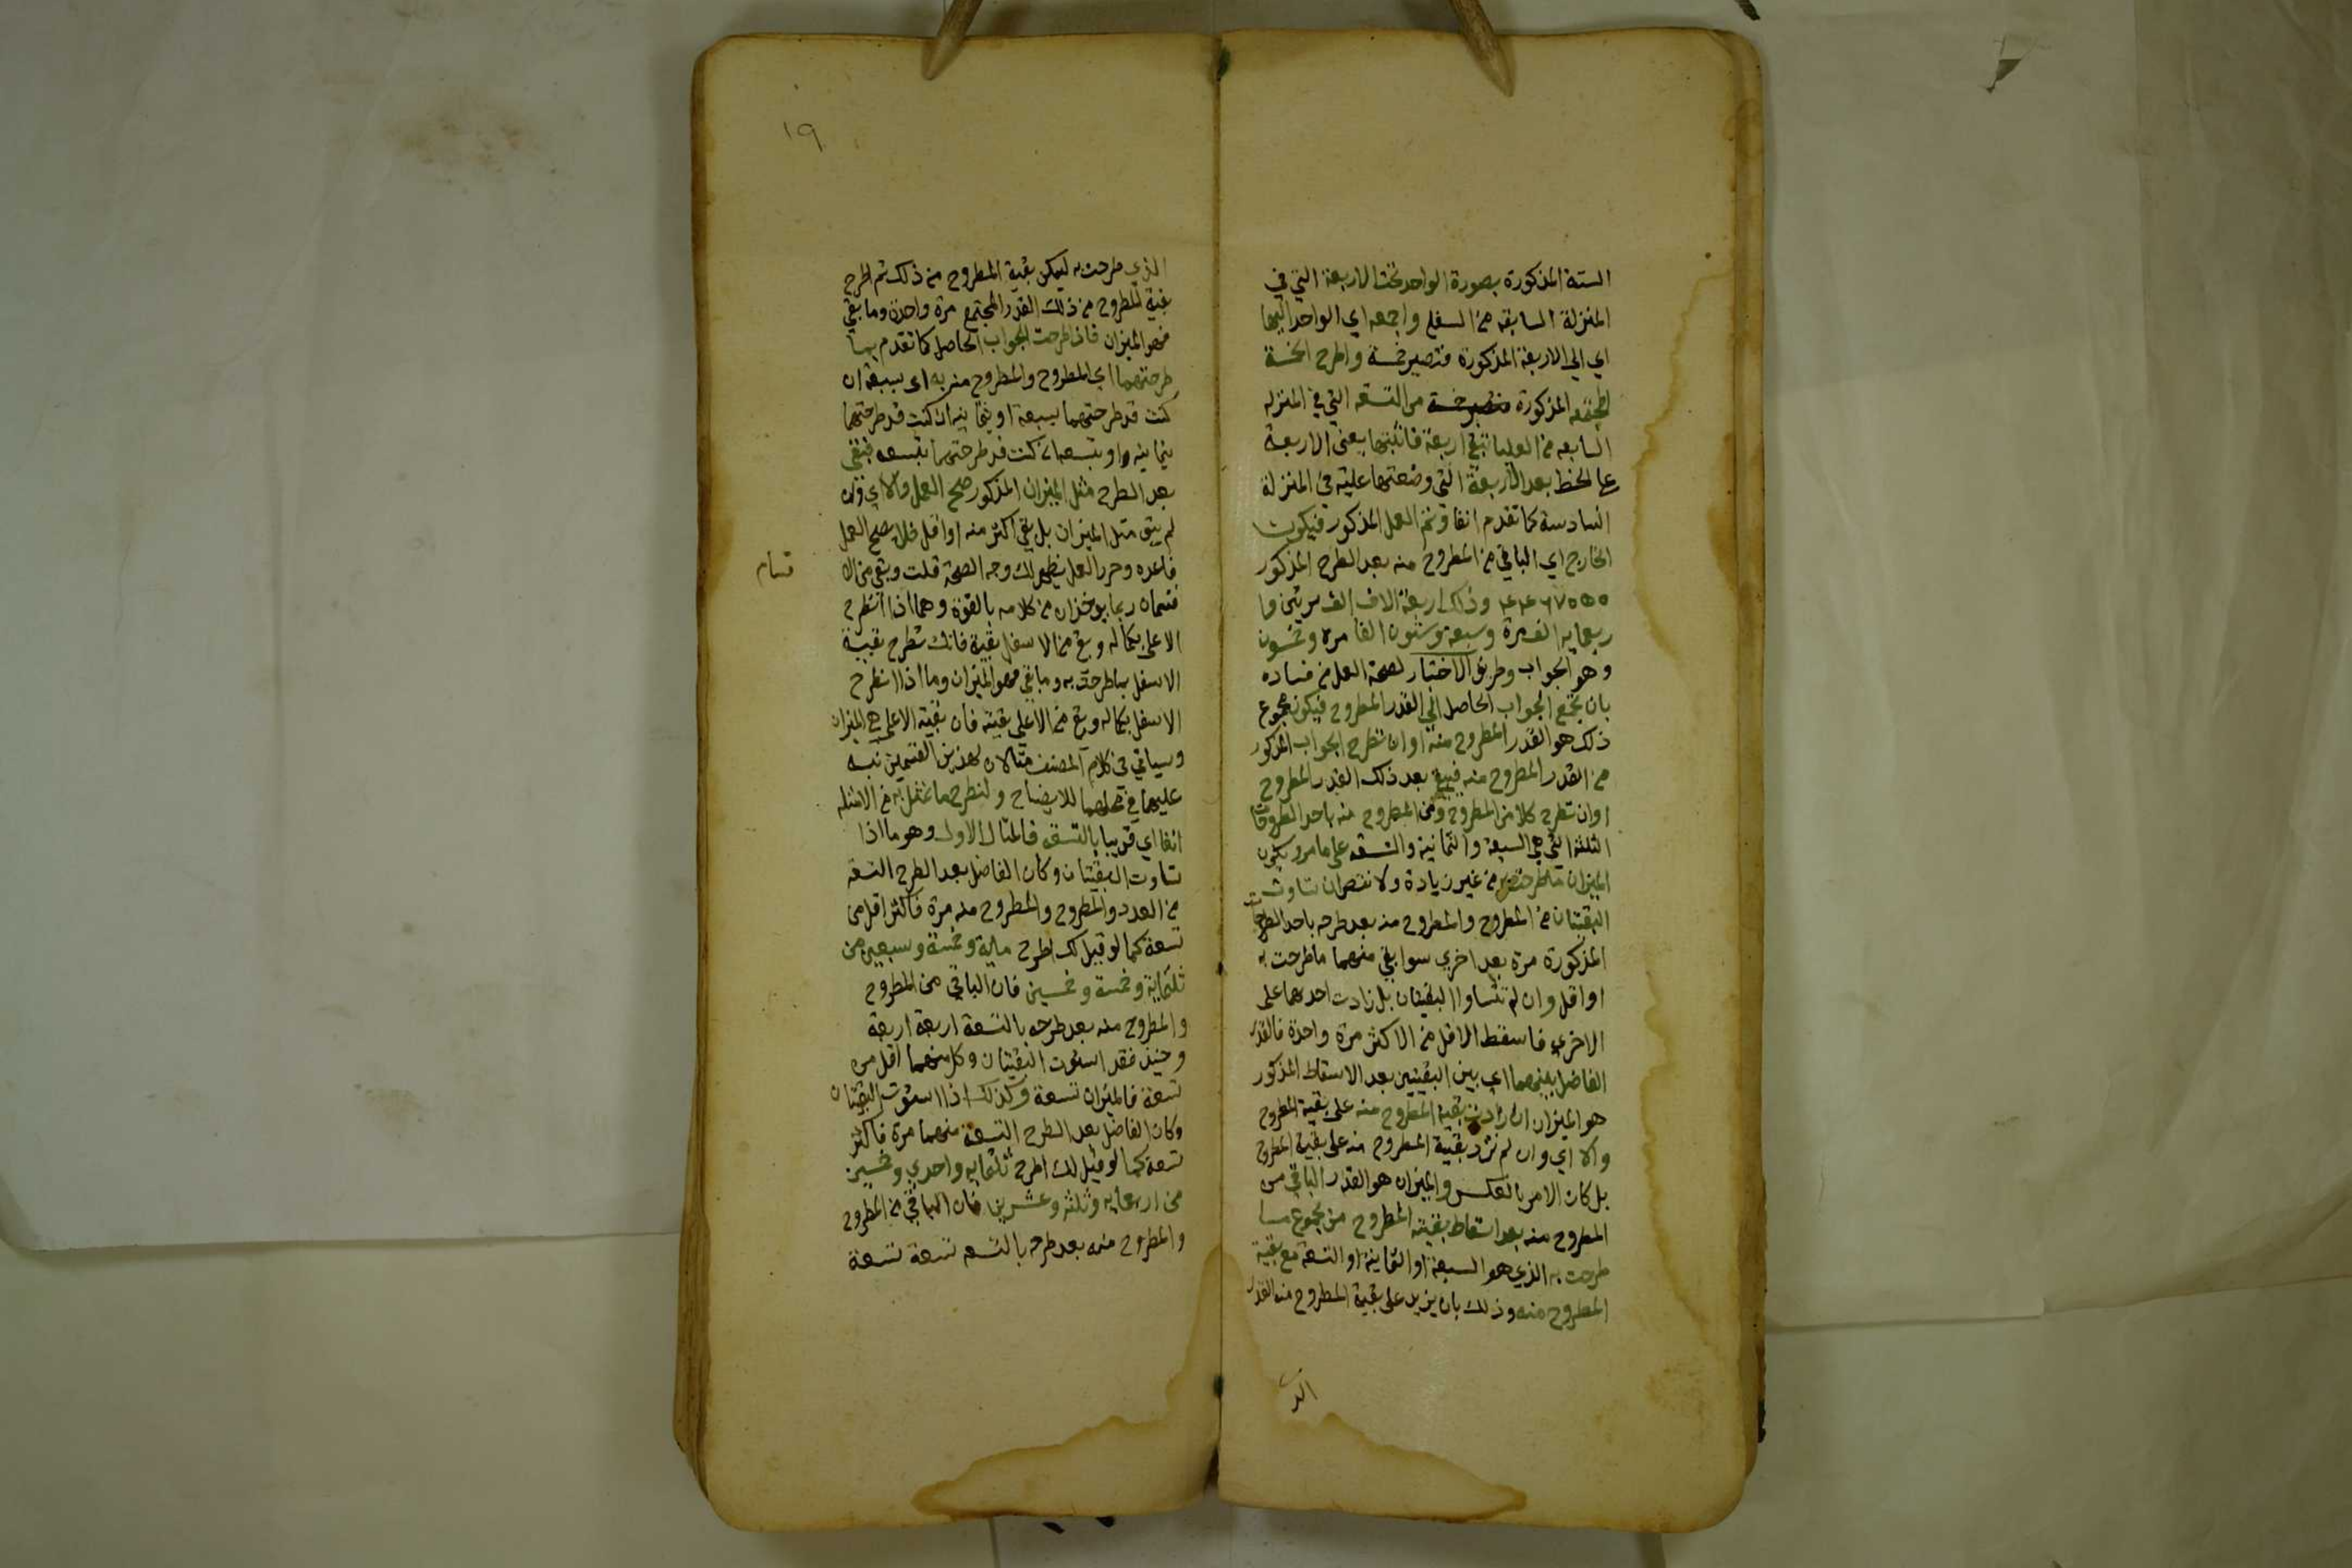 الستة المذكورة بصورة الواحد تحت الاربعة التي في
المنزلة السابعة من السفلى واجمعه اي الواحد اليها
اي الى الاربعة المذكورة فتصير خمسة واطرح الخمسة
المجتمعة المذكورة من التسعة التي في المنزله
السابعه من العليا تبقى اربعة فاثبتها يعني الاربعة
على الخط بعد الاربعة التي وضعتها عليه في المنزلة
السادسة كما تقدم انفا وتم العمل المذكور فيكون
الخارج اي الباقي من المطروح منه بعد الطرح المذكور
وذلك اربعة الاف الف مرتين
ربعمايه الف مرة وسبعة وستون الفا مرة وخمسون
وهو الجواب وطريق الاختبار لصحة العمل من فساده
بان تجمع الجواب الحاصل الى القدر المطروح فيكون مجموع
ذلك هو القدر المطروح منه او ان تطرح الجواب المذكور
من القدر المطروح منه فيبقى بعد ذلك القدر المطروح
او ان تطرح كلا من المطروح ومن المطروح منه باحد الطروحات
الثلثة التي هي السبعة والثمانية والتسعة على ما مر ويكون
الميزان ما طرحت به من غير زيادة ولا نقص ان تساوت
البقيتان من المطروح والمطروح منه بعد طرحه باحد الطروحات
المذكورة مرة بعد اخري سوا بقي منهما ما طرحت به
او اقل وان لم تتساوا البقيتان بل زادت احدهما على
الاخري فاسقط الاقل من الاكثر مرة واحدة فالقدر
الفاضل بينهما اي بين البقيتين بعد الاسقاط المذكور
هو الميزان ان زادت بقية المطروح منه على بقية المطروح
والا اي وان لم تزد بقية المطروح منه على بقية المطروح
بل كان الامر بالعكس والميزان هو القدر الباقي من
المطروح منه بعد اسقاط بقية المطروح من مجموع ما
طرحت به الذي هو السبعة او الثمانية او التسعة مع بقية
المطروح منه وذلك بان يزيد على بقية المطروح منه القدر
الذ
١٩
الذي طرحت به ليمكن بقية المطروح من ذلك ثم اطرح
بقية المطروح من ذلك القدر المجتمع مرة واحدة وما بقي
فهو الميزان فاذا طرحت الجواب الحاصل كما تقدم بما
طرحتهما اي المطروح والمطروح منه به اي بسبعة ان
كنت قد طرحتهما بسبعة او بثمانيه ان كنت قد طرحتهما
بثمانيه او بتسعه ان كنت قد طرحتهما بتسعه فبقي
بعد الطرح مثل الميزان المذكور صح العمل والا اي وان
لم يبق مثل الميزان بل بقي اكثر منه او اقل فلا يصح العمل
فاعده وحرر العمل يظهر لك وجه الصحة قلت وبقي من الا
قسام
قسمان ربما يوخذان من كلامه بالقوة وهما اذا انطرح
الاعلى بكماله وبقي من الاسفل بقية فانك تطرح بقية
الاسفل بما طرحت به وما بقي فهو الميزان وما اذا انطرح
الاسفل بكماله وبقي من الاعلى بقية فان بقية الاعلى هي الميزان
وسياتي في كلام المصنف مثالان لهذين القسمين ننبه
عليهما في محلهما للايضاح ولنطرح ما نمثل به من الامثله
انفا اي قريبا بالتسعه فالمثال الاول وهو ما اذا
تساوت البقيتان وكان الفاضل بعد الطرح التسعة
من العدد والمطروح والمطروح منه مرة فاكثر اقل من
تسعة كما لو قيل لك اطرح ماية وخمسة وسبعين من
ثلثماية وخمسة وخمسين فان الباقي من المطروح
والمطروح منه بعد طرحه بالتسعة اربعة اربعة
وحينئذ فقد استوت البقيتان وكل منهما اقل من
تسعة فالميزان تسعة وكذلك اذا استوت البقيتان
وكان الفاضل بعد الطرح التسعة منهما مرة فاكثر
تسعة كما لو قيل لك اطرح ثلثمايه واحدي وخمسين
من اربعمايه وثلثه وعشرين فان الباقي من المطروح
والمطروح منه بعد طرحه بالتسعه تسعة تسعة